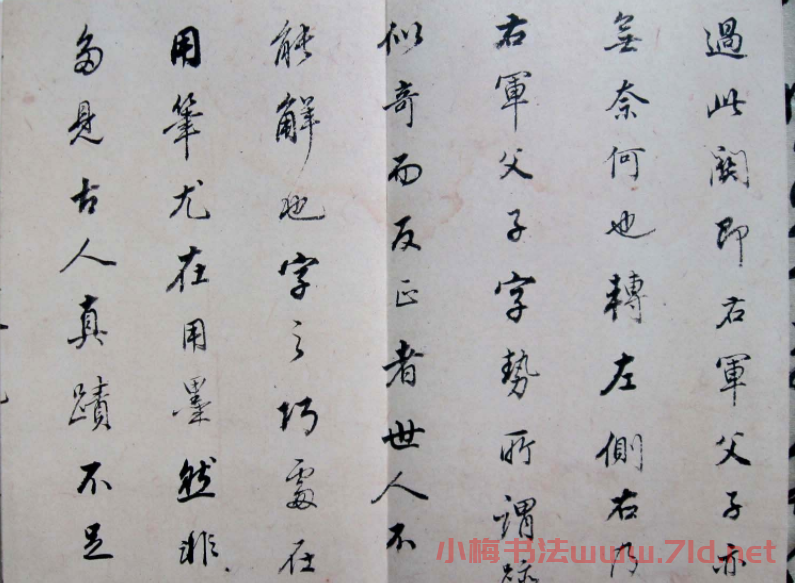 過此關即右軍父子亦
無奈何也轉左側右乃
右軍父子字勢所謂跡
似奇而反正者世人不
能解也字之巧處在
用筆尤在用墨然非
多見古人真蹟不足
小梅书法www.7ld.net